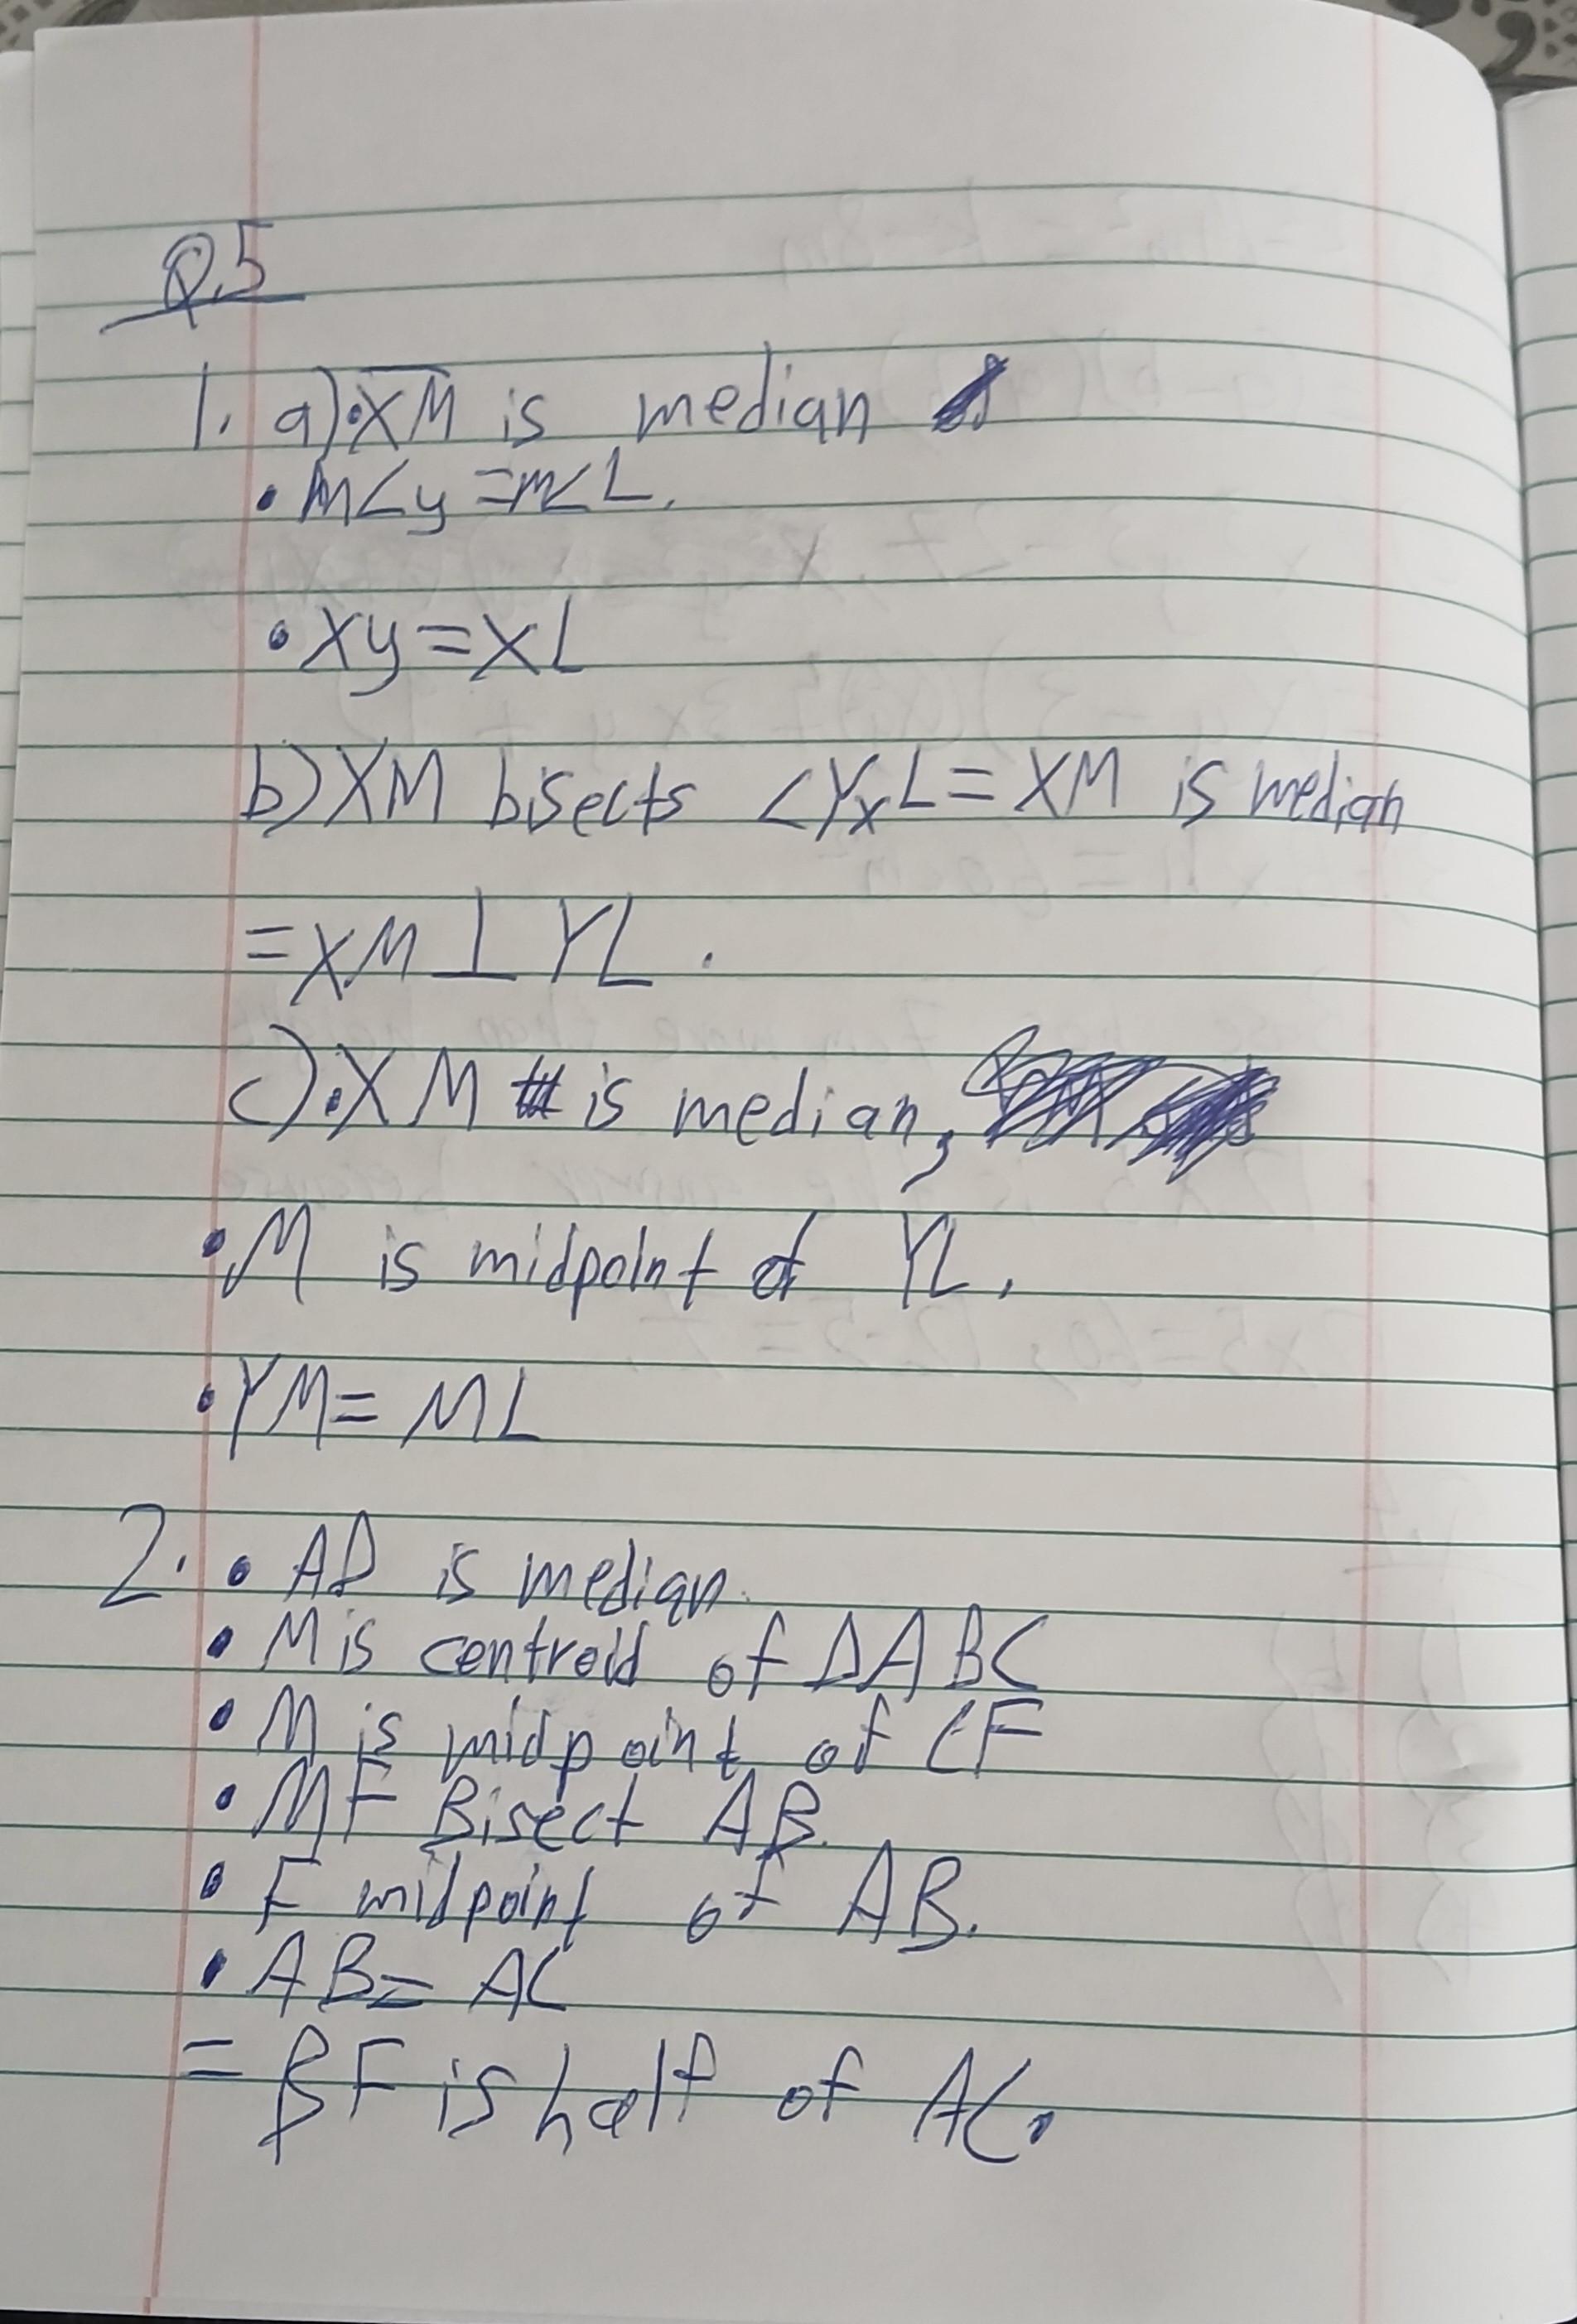 Q.5
1. a) • XM is median
• m∠y = m∠L.
• xy = XL
b) XM bisects ∠YxL = XM is median
= XM ⊥ YL .
c) • XM is median,
• M is midpoint of YL,
• YM = ML
2. • AD is median.
• M is centroid of ΔABC
• M is midpoint of CF
• MF Bisect AB.
• F midpoint of AB.
• AB = AC
= BF is half of AC.